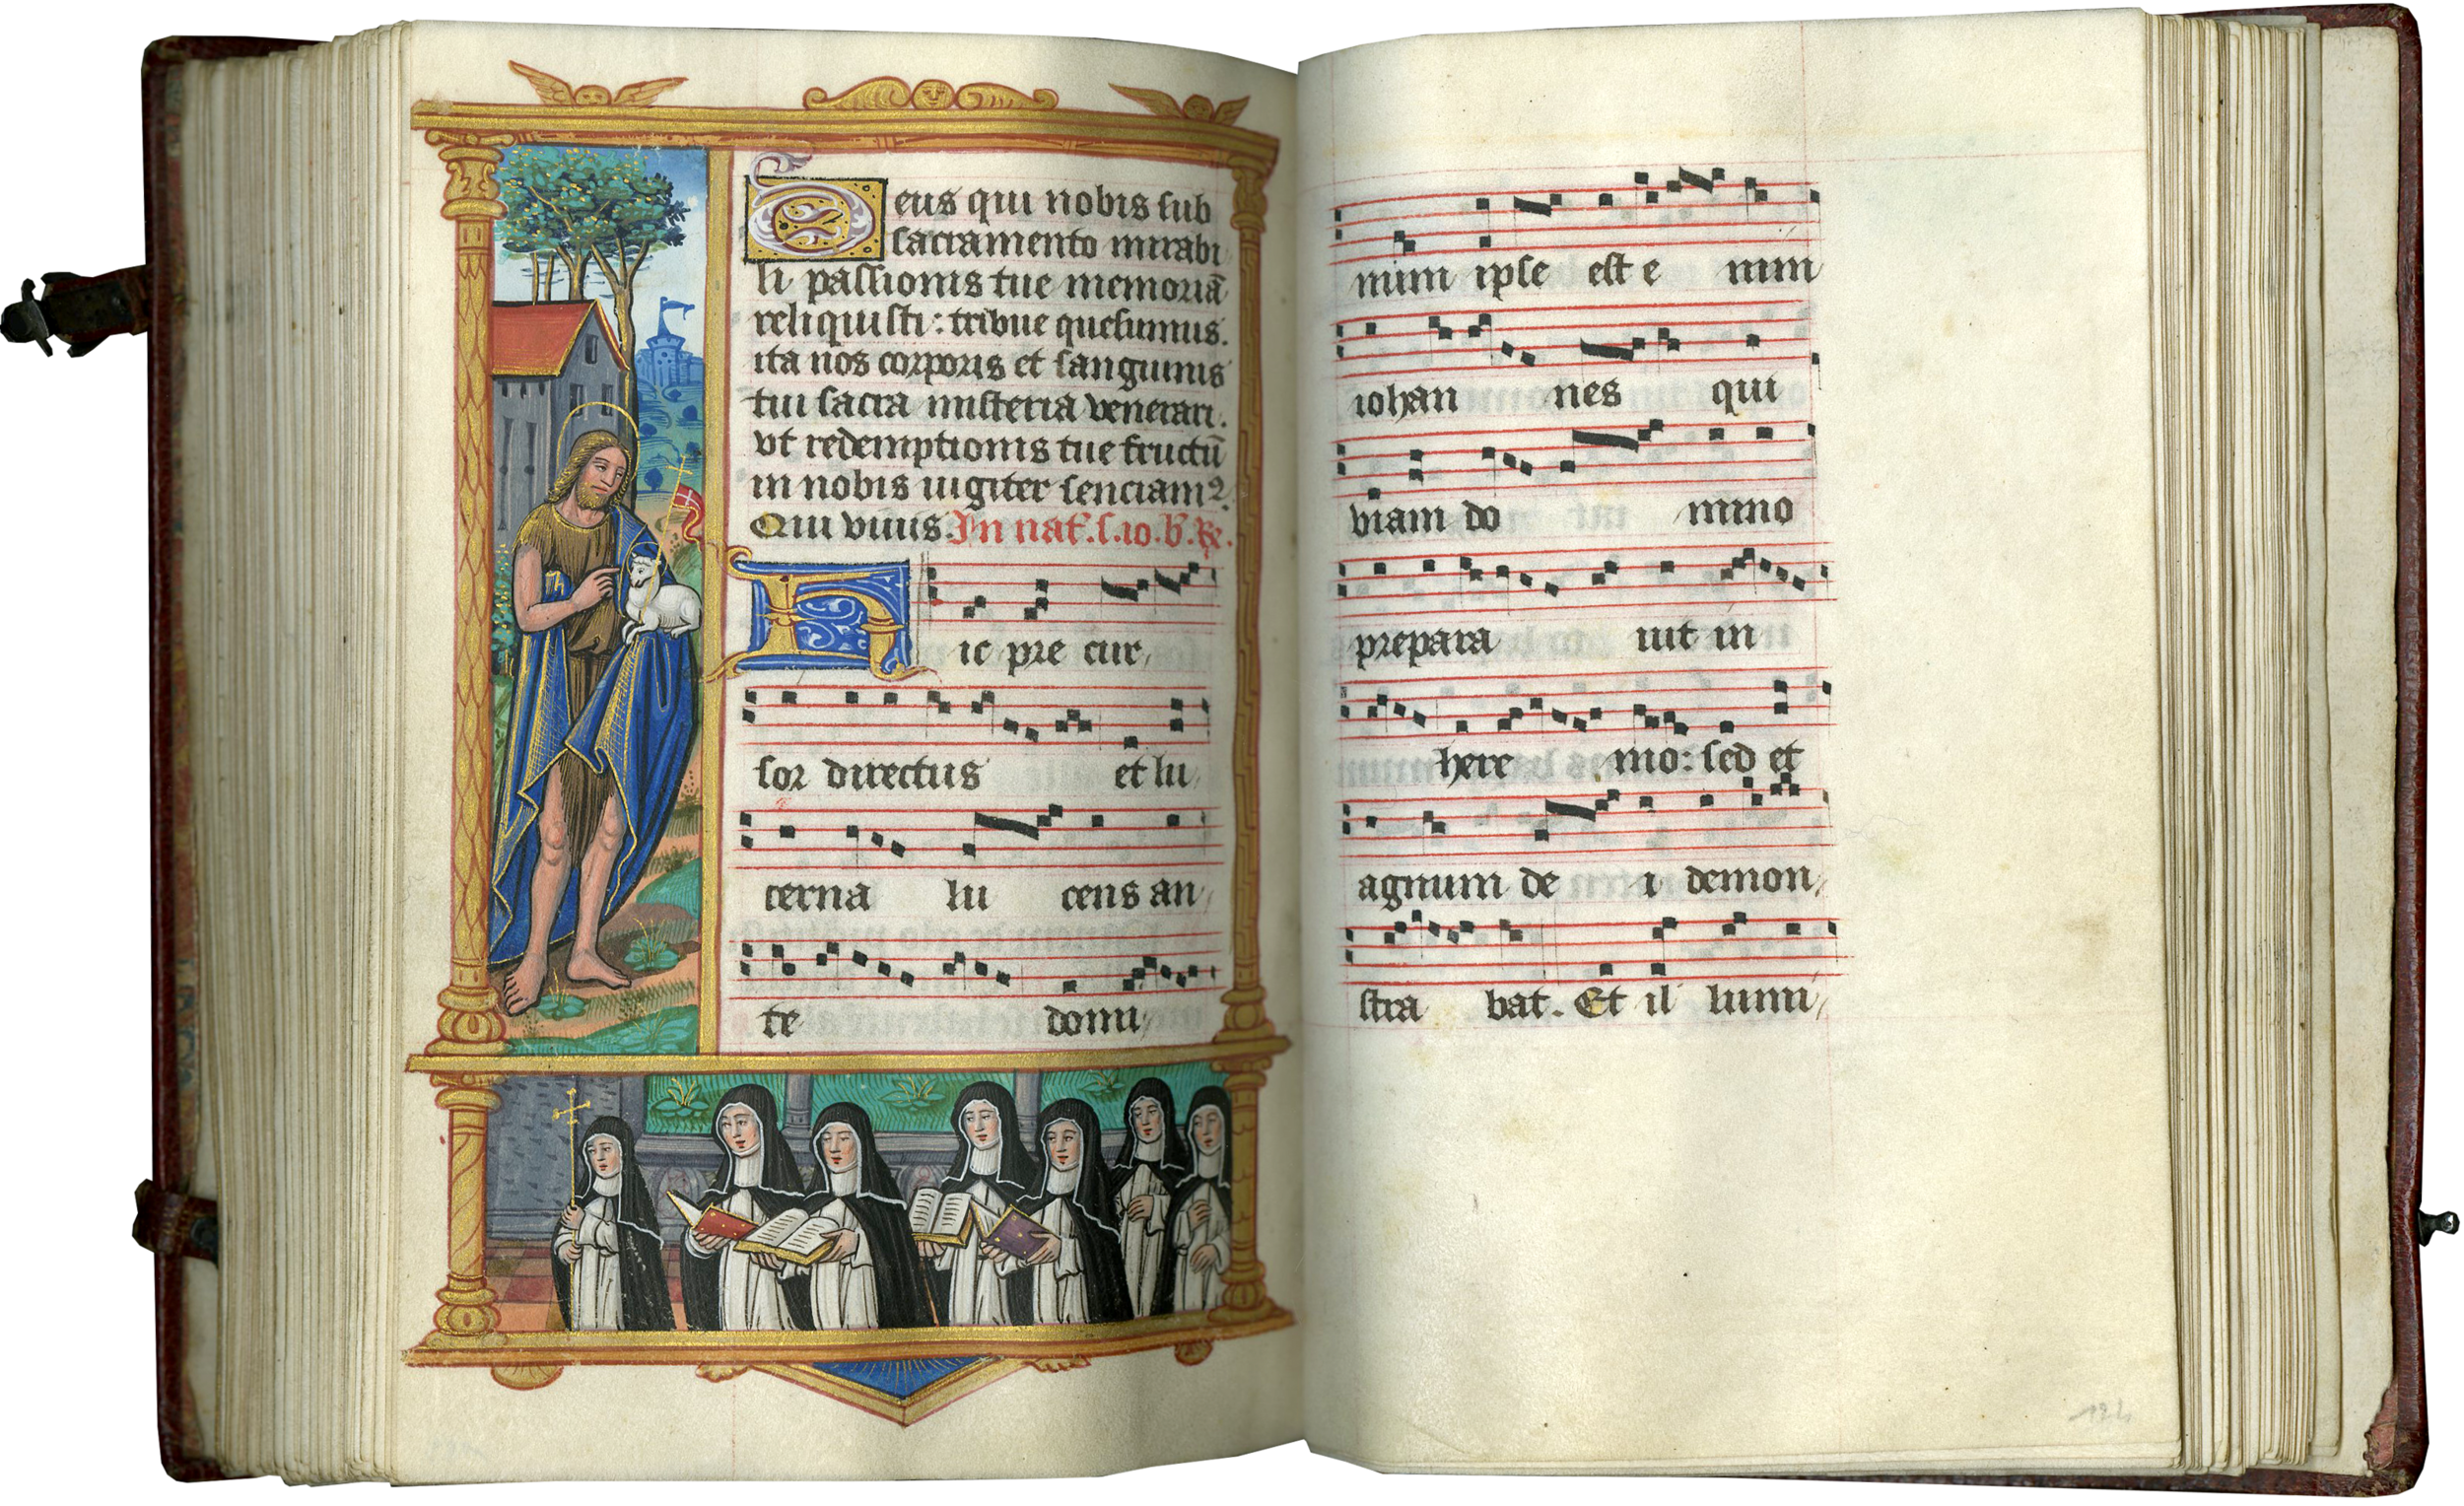 Deus qui nobis sub
sacramento mirabi
li passionis tue memoriā
reliquisti: tribue quesumus.
ita nos corporis et sanguinis
tui sacra misteria venerari.
vt redemptionis tue fructū
in nobis iugiter senciamꝰ.
Qui viuis. In nat. s. io. b. ℟.
Hic pre cur,
sor directus et lu,
cerna lu cens an,
te domi,
num ipse est e nim
iohan nes qui
viam do mino
prepara uit in
here mo: sed et
agnum de i demon,
stra bat. Et il lumi,
124